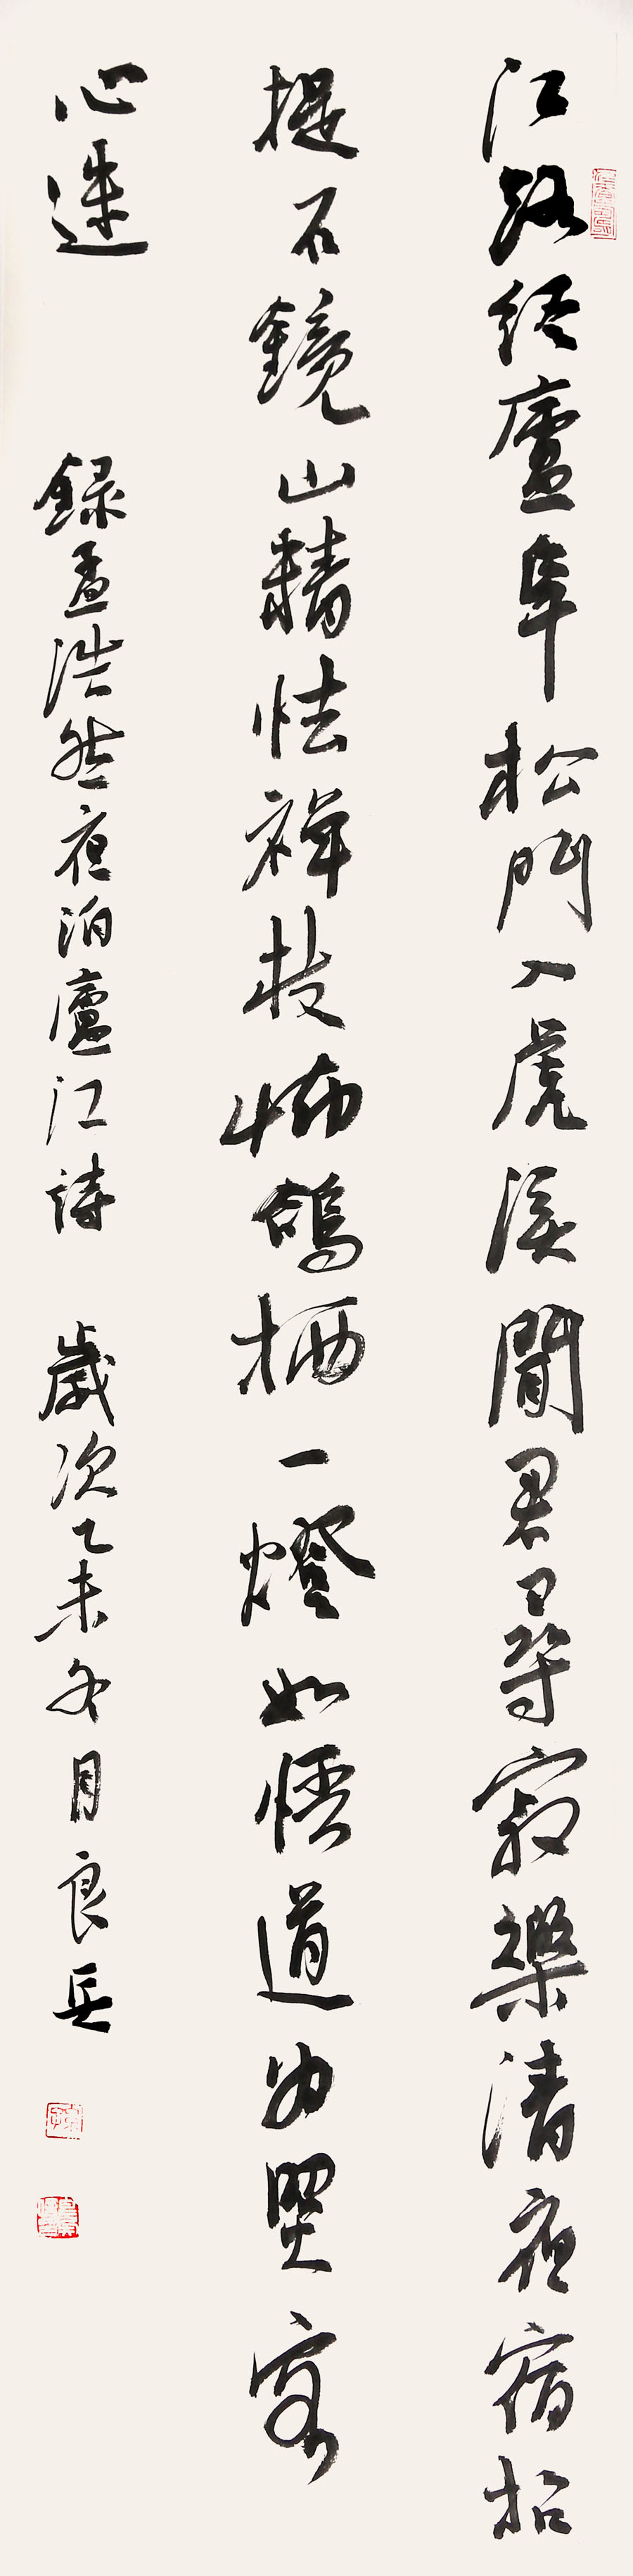 江路經廬阜松門入虎溪聞君尋寂樂清夜宿招
提石鏡山精怯禪枝怖鴿栖一燈如悟道為照客
心迷 録孟浩然夜泊廬江詩 歲次乙未冬月良